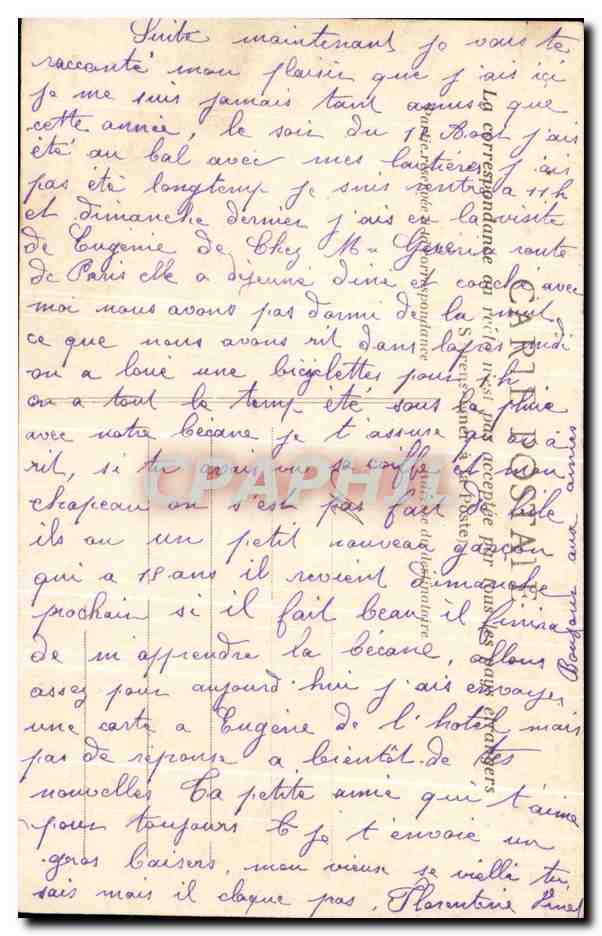 Suite maintenant je vous te
racconté mon plaisir que j'ais ici
je me suis jamais tant amusé que
cette année, le soir du 15 Aout j'ais
été au bal avec mes j'ais
pas été longtemp je suis rentré a 11h
et dimanche dernier j'ais eu la visite
de Eugénie de Chez Mr route
de Paris elle a dejeuné diné et couché avec
moi nous avons pas dormi de la nuit
ce que nous avons rit dans laprés midi
on a loué une bicyclettes pour 1h
on a tout le temp été sous la pluie
avec notre bécane je t'assure qu'on a
rit, si tu avais vue sa coiffe et mon
chapeau on s'est pas fait de bile
ils on un petit nouveau garçon
qui a 18 ans il revient dimanche
prochain si il fait beau il finira
de m'apprendre la bécane, allons
assez pour aujourd'hui j'ais envoyer
une carte a Eugène de l'hotel mais
pas de réponse a bientôt de tes
nouvelles Ta petite amie qui t'aime
pour toujours je t'envoie un
gros baisers, mon vieux se vielli tu
sais mais il claque pas. Florentine
Bonjour aux amies
CARTE POSTALE
La correspondance au recto n'est pas acceptée par tous les pays étrangers
Se renseigner à la Poste
Partie réservée à la correspondance
Adresse du destinataire
CPARPHIL